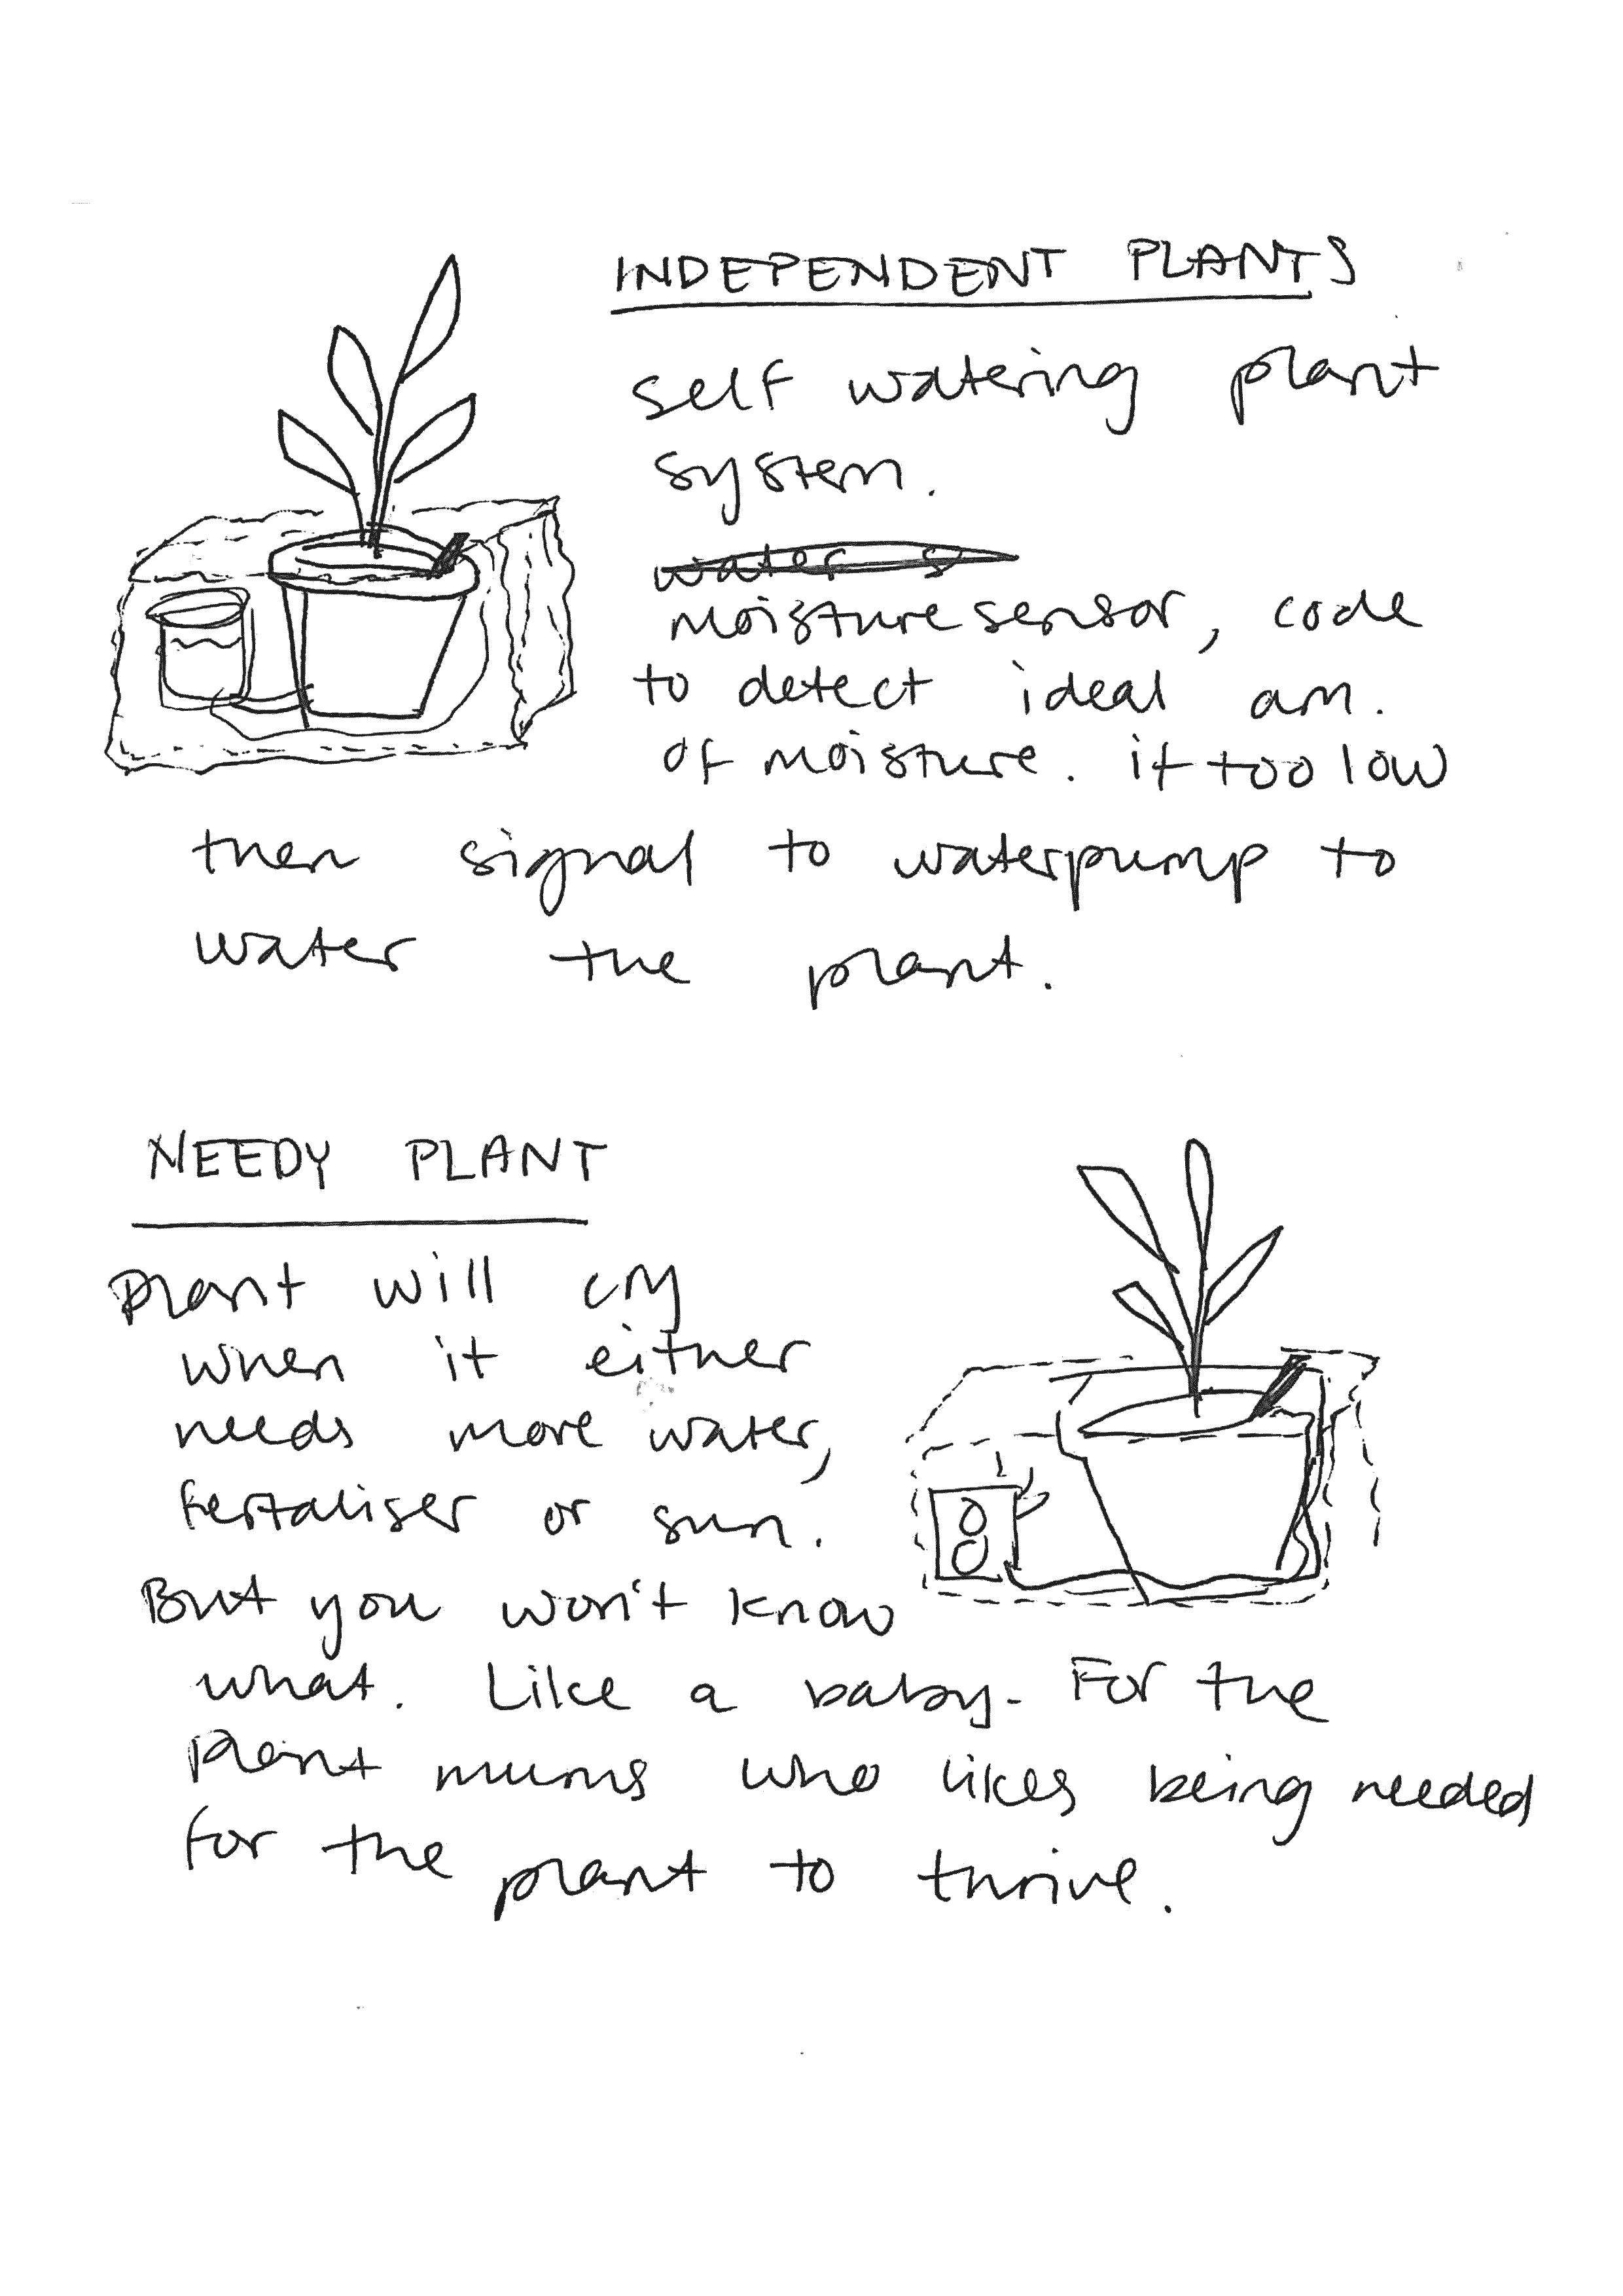 INDEPENDENT PLANTS
self watering plant
system.
water s
moisture sensor, code
to detect ideal am.
of moisture. if too low
then signal to waterpump to
water the plant.
NEEDY PLANT
Plant will cry
when it either
needs more water,
fertaliser or sun.
But you won't know
what. Like a baby. For the
plant mums who likes being needed
for the plant to thrive.